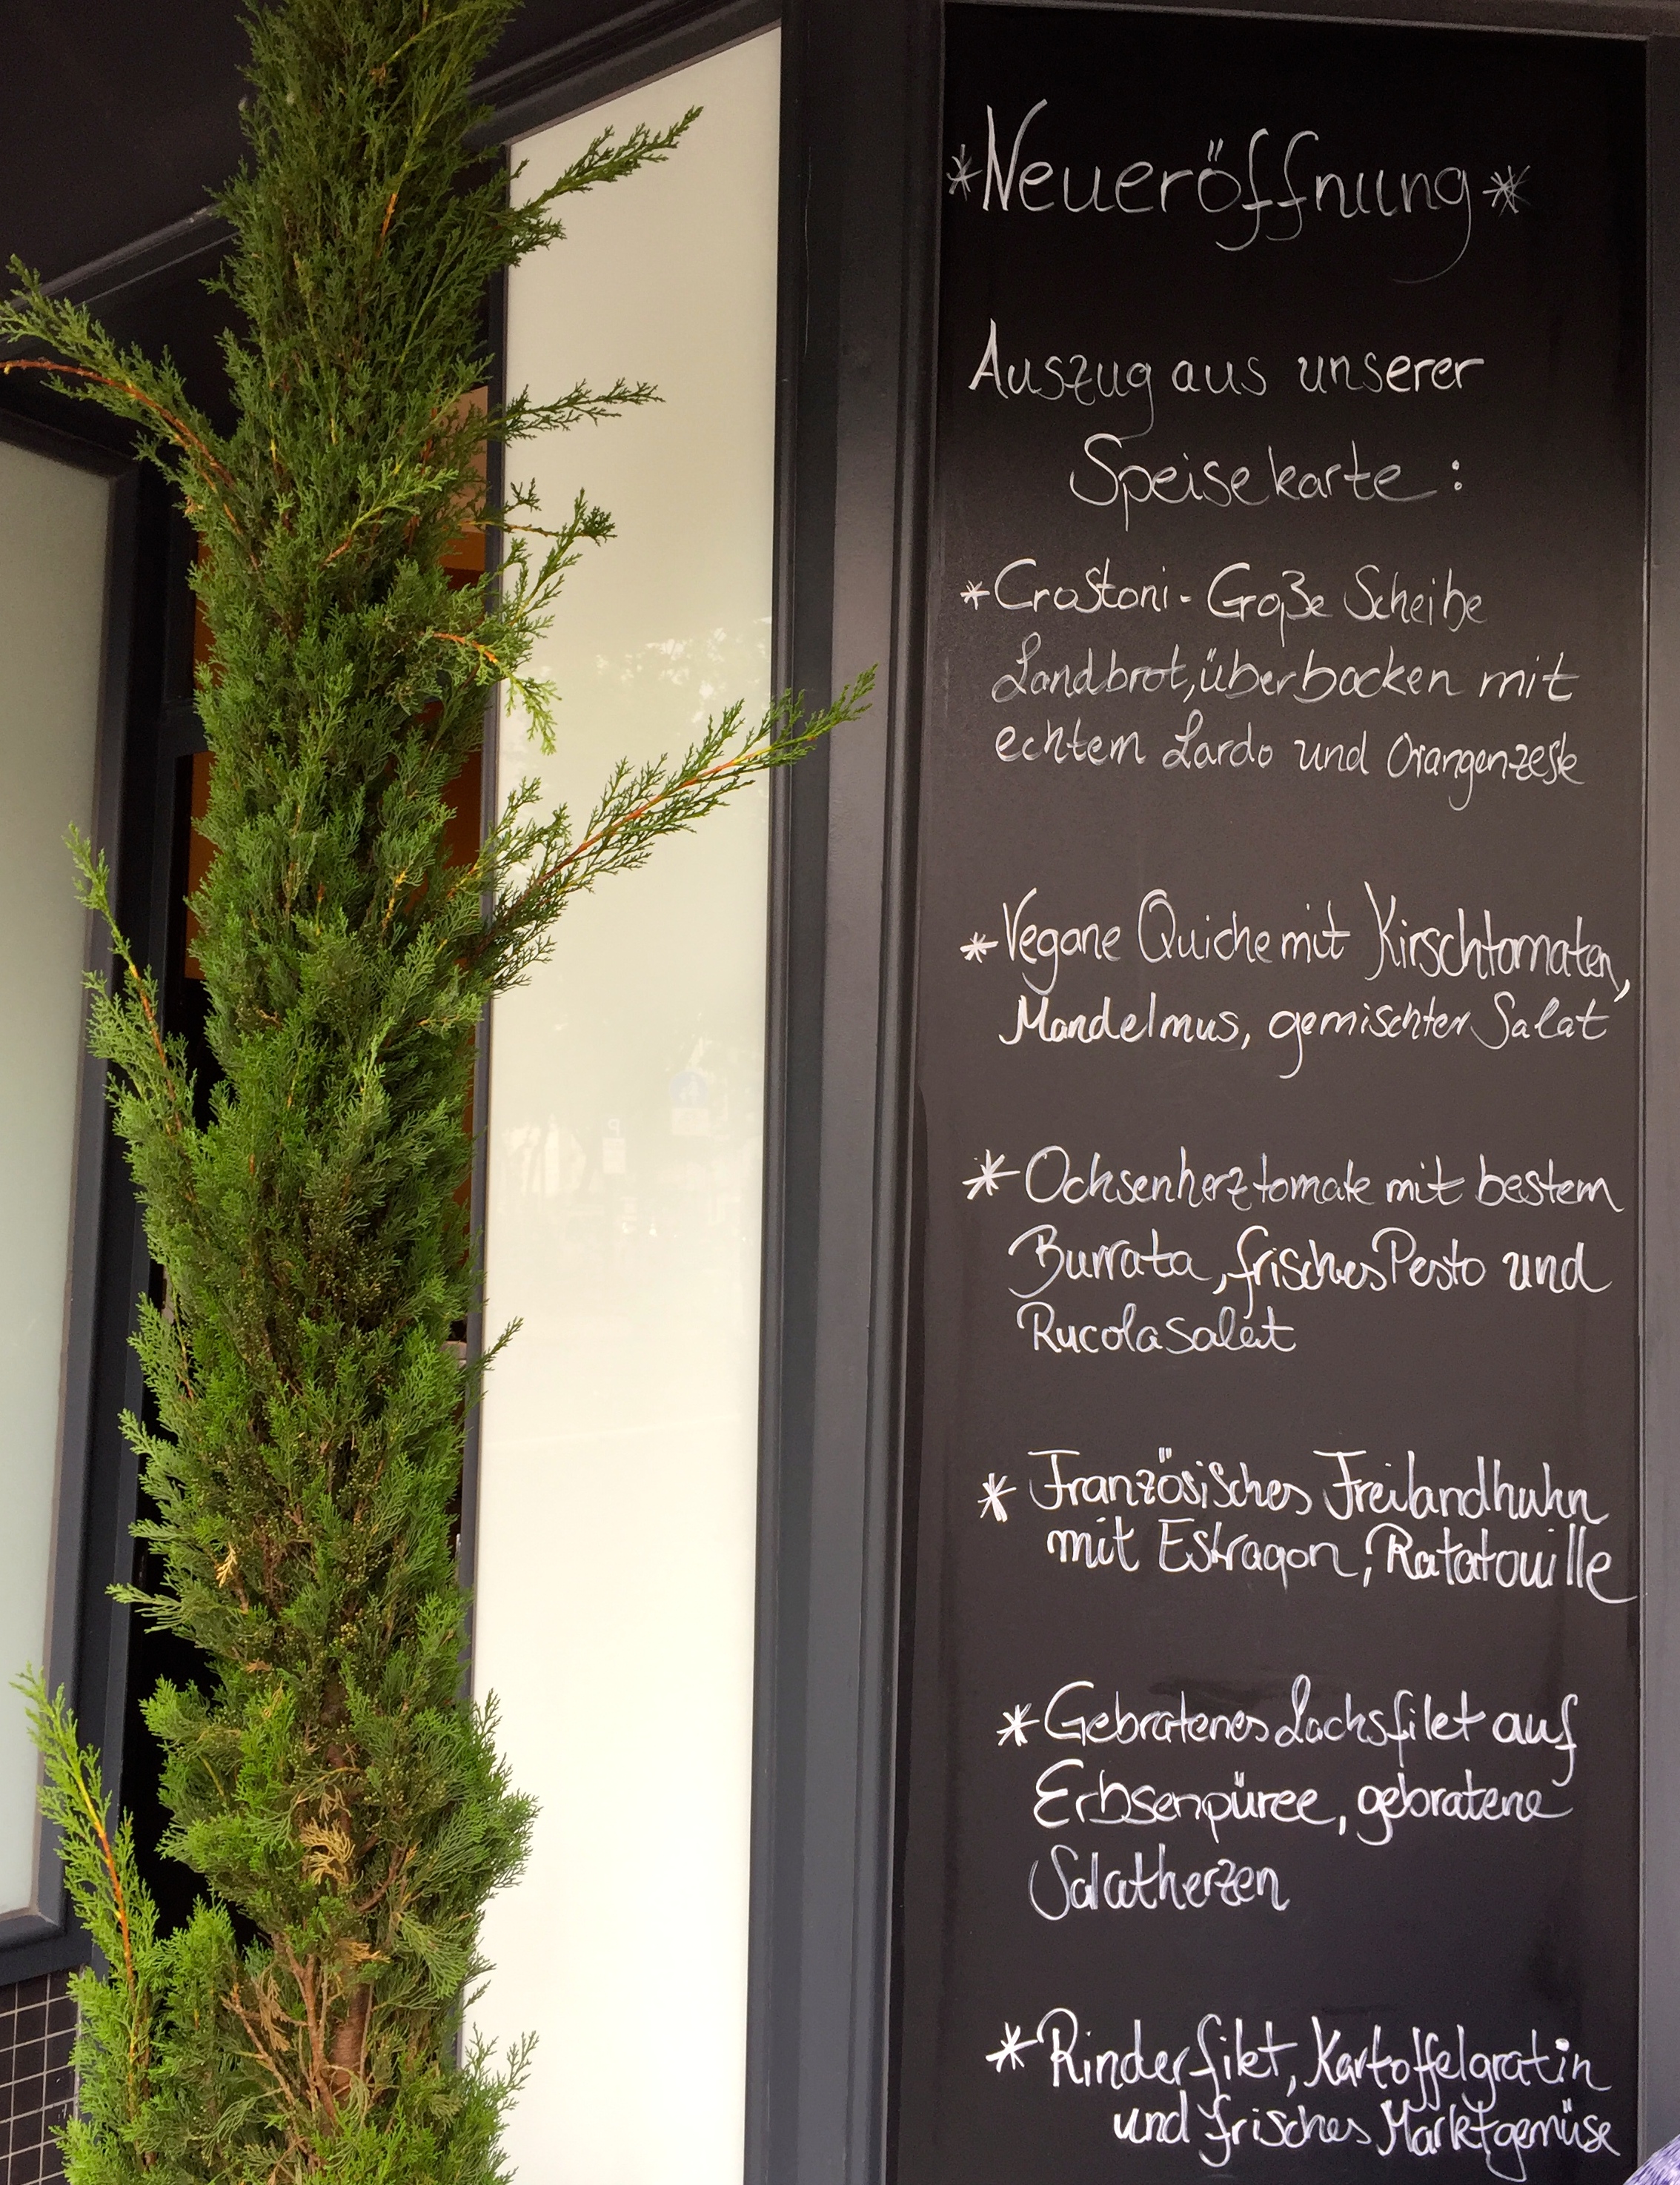 *Neueröffnung*
Auszug aus unserer
Speisekarte :
*Crostoni - Große Scheibe
Landbrot, überbacken mit
echtem Lardo und Orangenzeste
*Vegane Quiche mit Kirschtomaten,
Mandelmus, gemischter Salat
*Ochsenherztomate mit bestem
Burrata, frisches Pesto und
Rucolasalat
*Französisches Freilandhuhn
mit Estragon, Ratatouille
*Gebratenes Lachsfilet auf
Erbsenpüree, gebratene
Salatherzen
*Rinderfilet, Kartoffelgratin
und frisches Marktgemüse